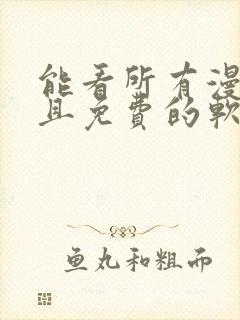 能看所有漫
且免費的軟
鱼丸和粗而